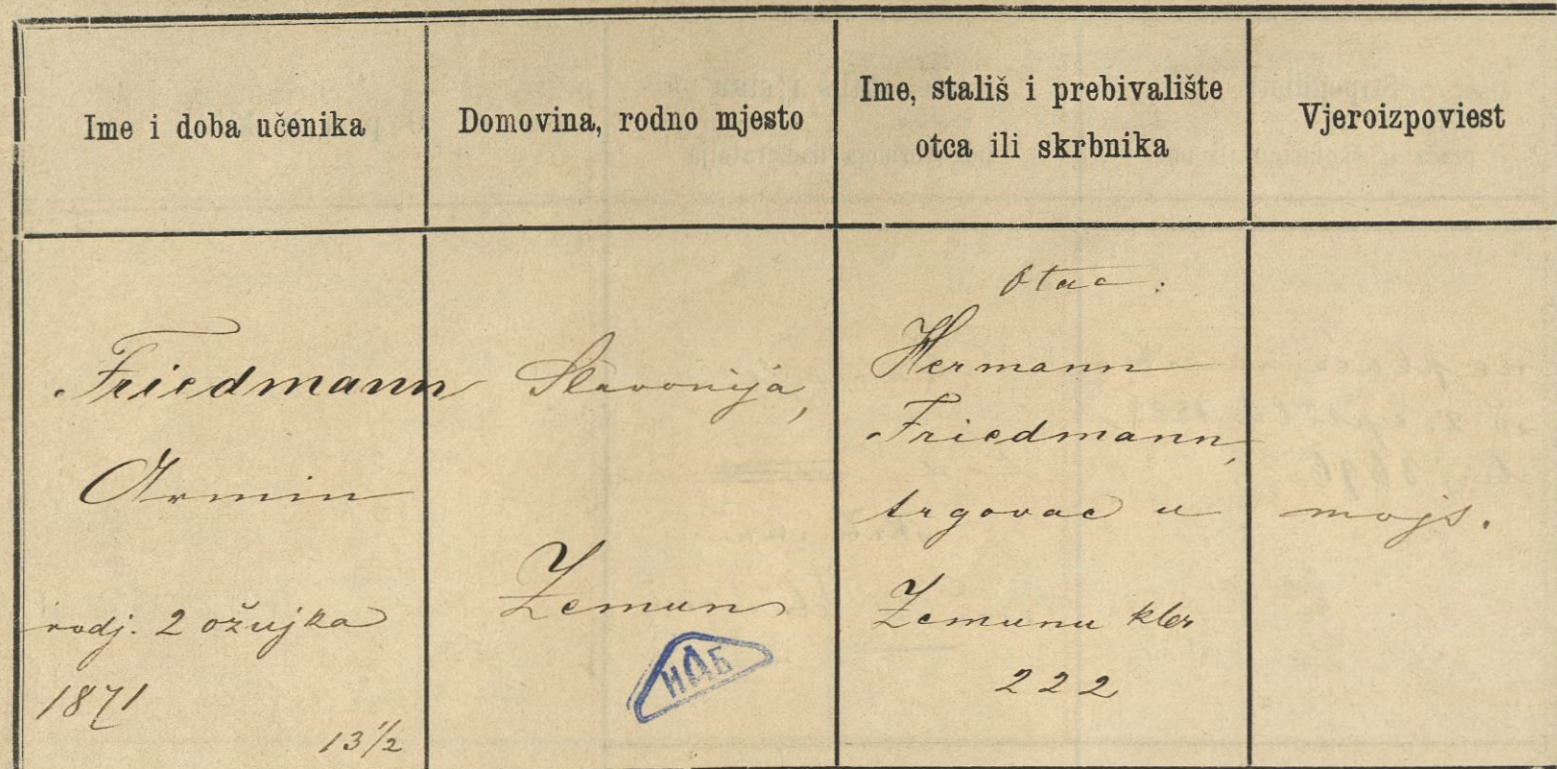 Ime i doba učenika
Domovina, rodno mjesto
Ime, stališ i prebivalište
otca ili skrbnika
Vjeroizpoviest
Friedmann
Armin
rodj. 2 ožujka
1871
13 1/2
Slavonija,
Zemun
ИАБ
Otac:
Hermann
Friedmann,
trgovac u
Zemunu kbr
222
mojs.